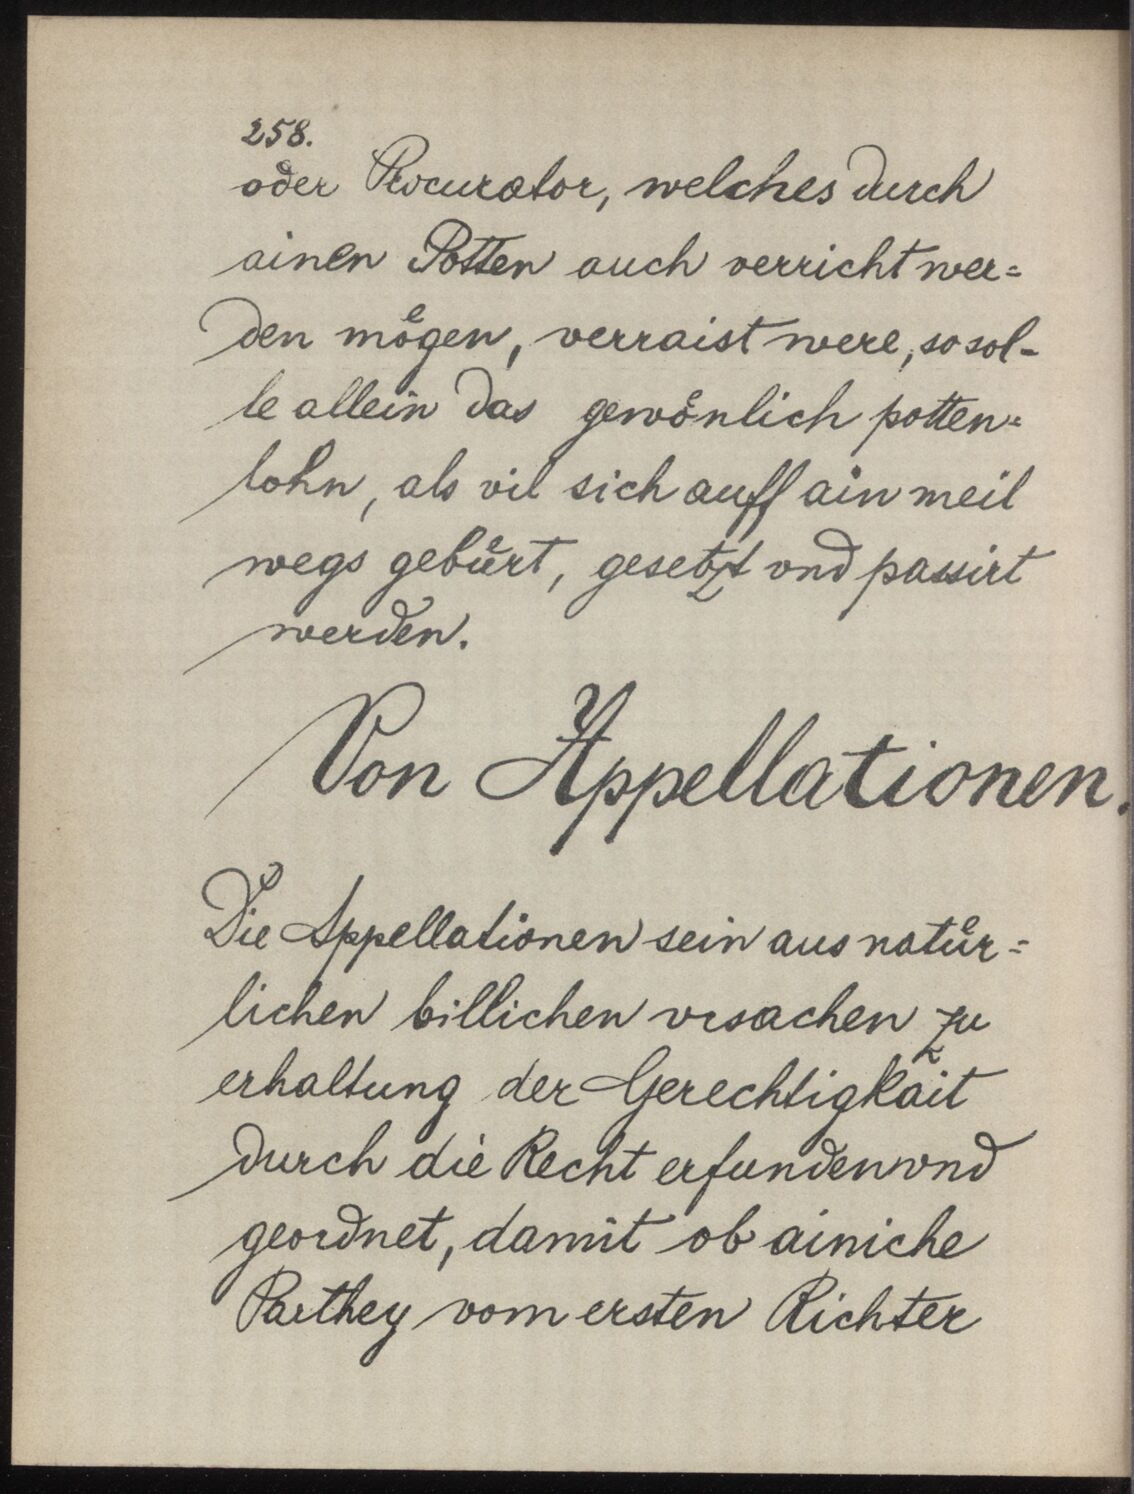 258.
oder Procurator, welches durch
ainen Potten auch verricht wer=
den moͤgen, verraist were, so sol-
le allein das gewoͤnlich potten=
lohn, als vil sich auff ain meil
wegs gebuͤrt, gesetzt vnd passirt
werden.
Von Appellationen.
Die Appellationen sein aus natuͤr=
lichen billichen vrsachen zu
erhaltung der Gerechtigkait
durch die Recht erfunden vnd
geordnet, damit ob ainiche
Parthey vom ersten Richter